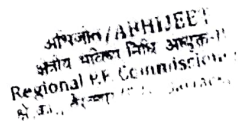 अभिजीत/ABHIJEET
क्षेत्रीय भविष्य निधि आयुक्त-II
Regional P.F. Commissioner
क्षे.का.,